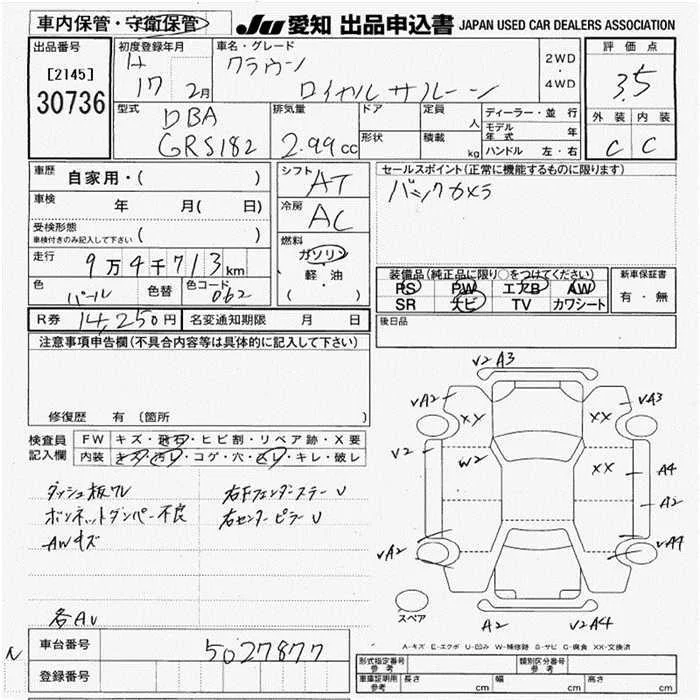 車内保管・守衛保管
JU 愛知 出品申込書 JAPAN USED CAR DEALERS ASSOCIATION
出品番号 初度登録年月 車名・グレード 2WD・4WD 評価点
[2145] H 17 2月 クラウン ロイヤルサルーン 3.5
30736
型式 DBA GRS182 排気量 2.99cc ドア 定員 人 ディーラー・並行
形状 積載 kg モデル年式 年 外装 内装
ハンドル 左・右 C C
車歴 自家用・( ) シフト AT セールスポイント(正常に機能するものに限ります)
車検 年 月( 日) 冷房 AC バックカメラ
受検形態 ( )
車検付きのみ記入して下さい
燃料 ガソリン 軽・油 ( )
走行 9万4千713km
色 パール 色替 色コード 062
装備品(純正品に限り○をつけてください) 新車保証書
PS PW エアB AW 有・無
SR ナビ TV カワシート
R券 14,250円 名変通知期限 月 日 後日品
注意事項申告欄(不具合内容等は具体的に記入して下さい)
修復歴 有(箇所 )
検査員記入欄 FW キズ・飛石・ヒビ割・リペア跡・X要
内装 キズ・汚レ・コゲ・穴・スレ・キレ・破レ
ダッシュ板ワレ 右Fフェンダーステー U
ボンネットダンパー不良 右センターピラー U
AWキズ
各AU
V2 A3
VA2 VA3
XX XX
V2 W2 XX A4
A2
VA2 VA4
スペア A2 V2A4
A-キズ E-エクボ U-凹み W-補修跡 S-サビ C-腐食 XX-交換済
車台番号 5027877
登録番号
形式指定番号 参考 類別区分番号 参考
車庫証明用 参考 長さ cm 幅 cm 高さ cm